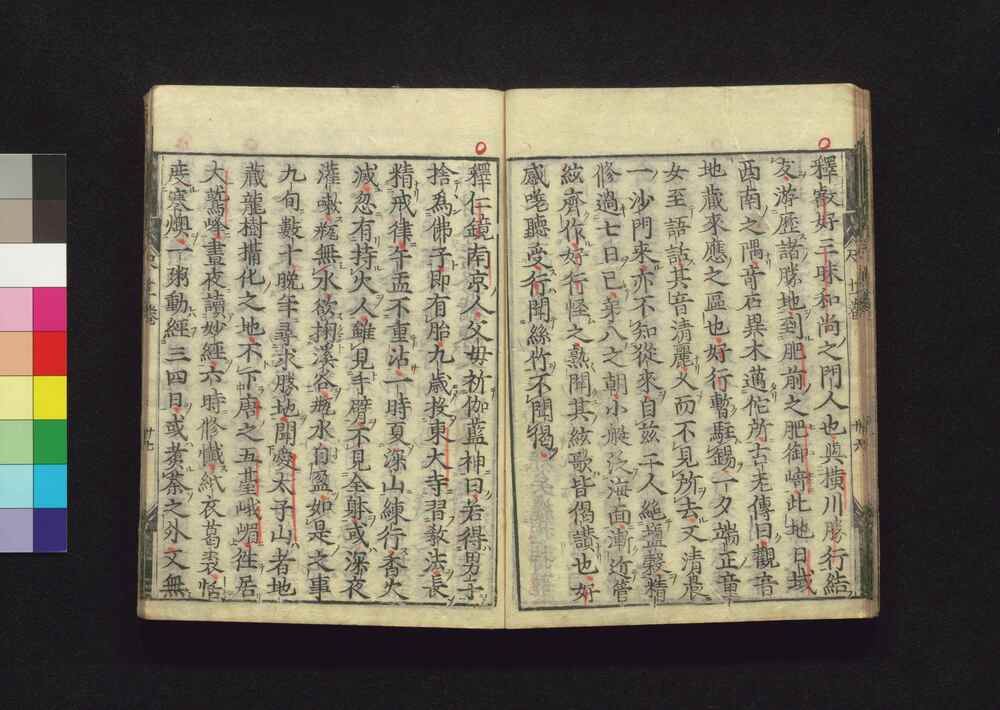 釋寂好三昧和尚之門人也與橫川勝行結
友游歷諸勝地到肥前之肥御﨑此地日域
西南之隅竒石異木邁佗所古老傳曰觀音
地藏來應之區也好行暫駐錫一夕端正童
女至語話其音清麗乂而不見所去又清臯
一沙門來亦不知從來自茲二人絶鹽穀精
修過七日已第八之朝小艇泛海面漸近管
絃齊作好行怪之熟聞其絃歌皆偈讃也好
感嗟聽受行聞絲竹不聞偈
釋仁鏡南京人父母祈伽藍神曰若得男子
捨爲佛子即有胎九歳投東大寺習敎法長
精戒律午盂不重沾一時夏深山練行香火
滅忽有持火人雖見手臂不見全躰或深夜
灌嗽瓶無水欲掬溪谷瓶水自盈如是之事
九旬數十晩年尋求勝地聞愛太子山者地
藏龍樹攝化之地不下唐之五䑓峨嵋徃居
大鷲峰晝夜讀妙經六時修懺紙衣葛裘恬
度寒燠一粥動經三四日或煑茶之外文無